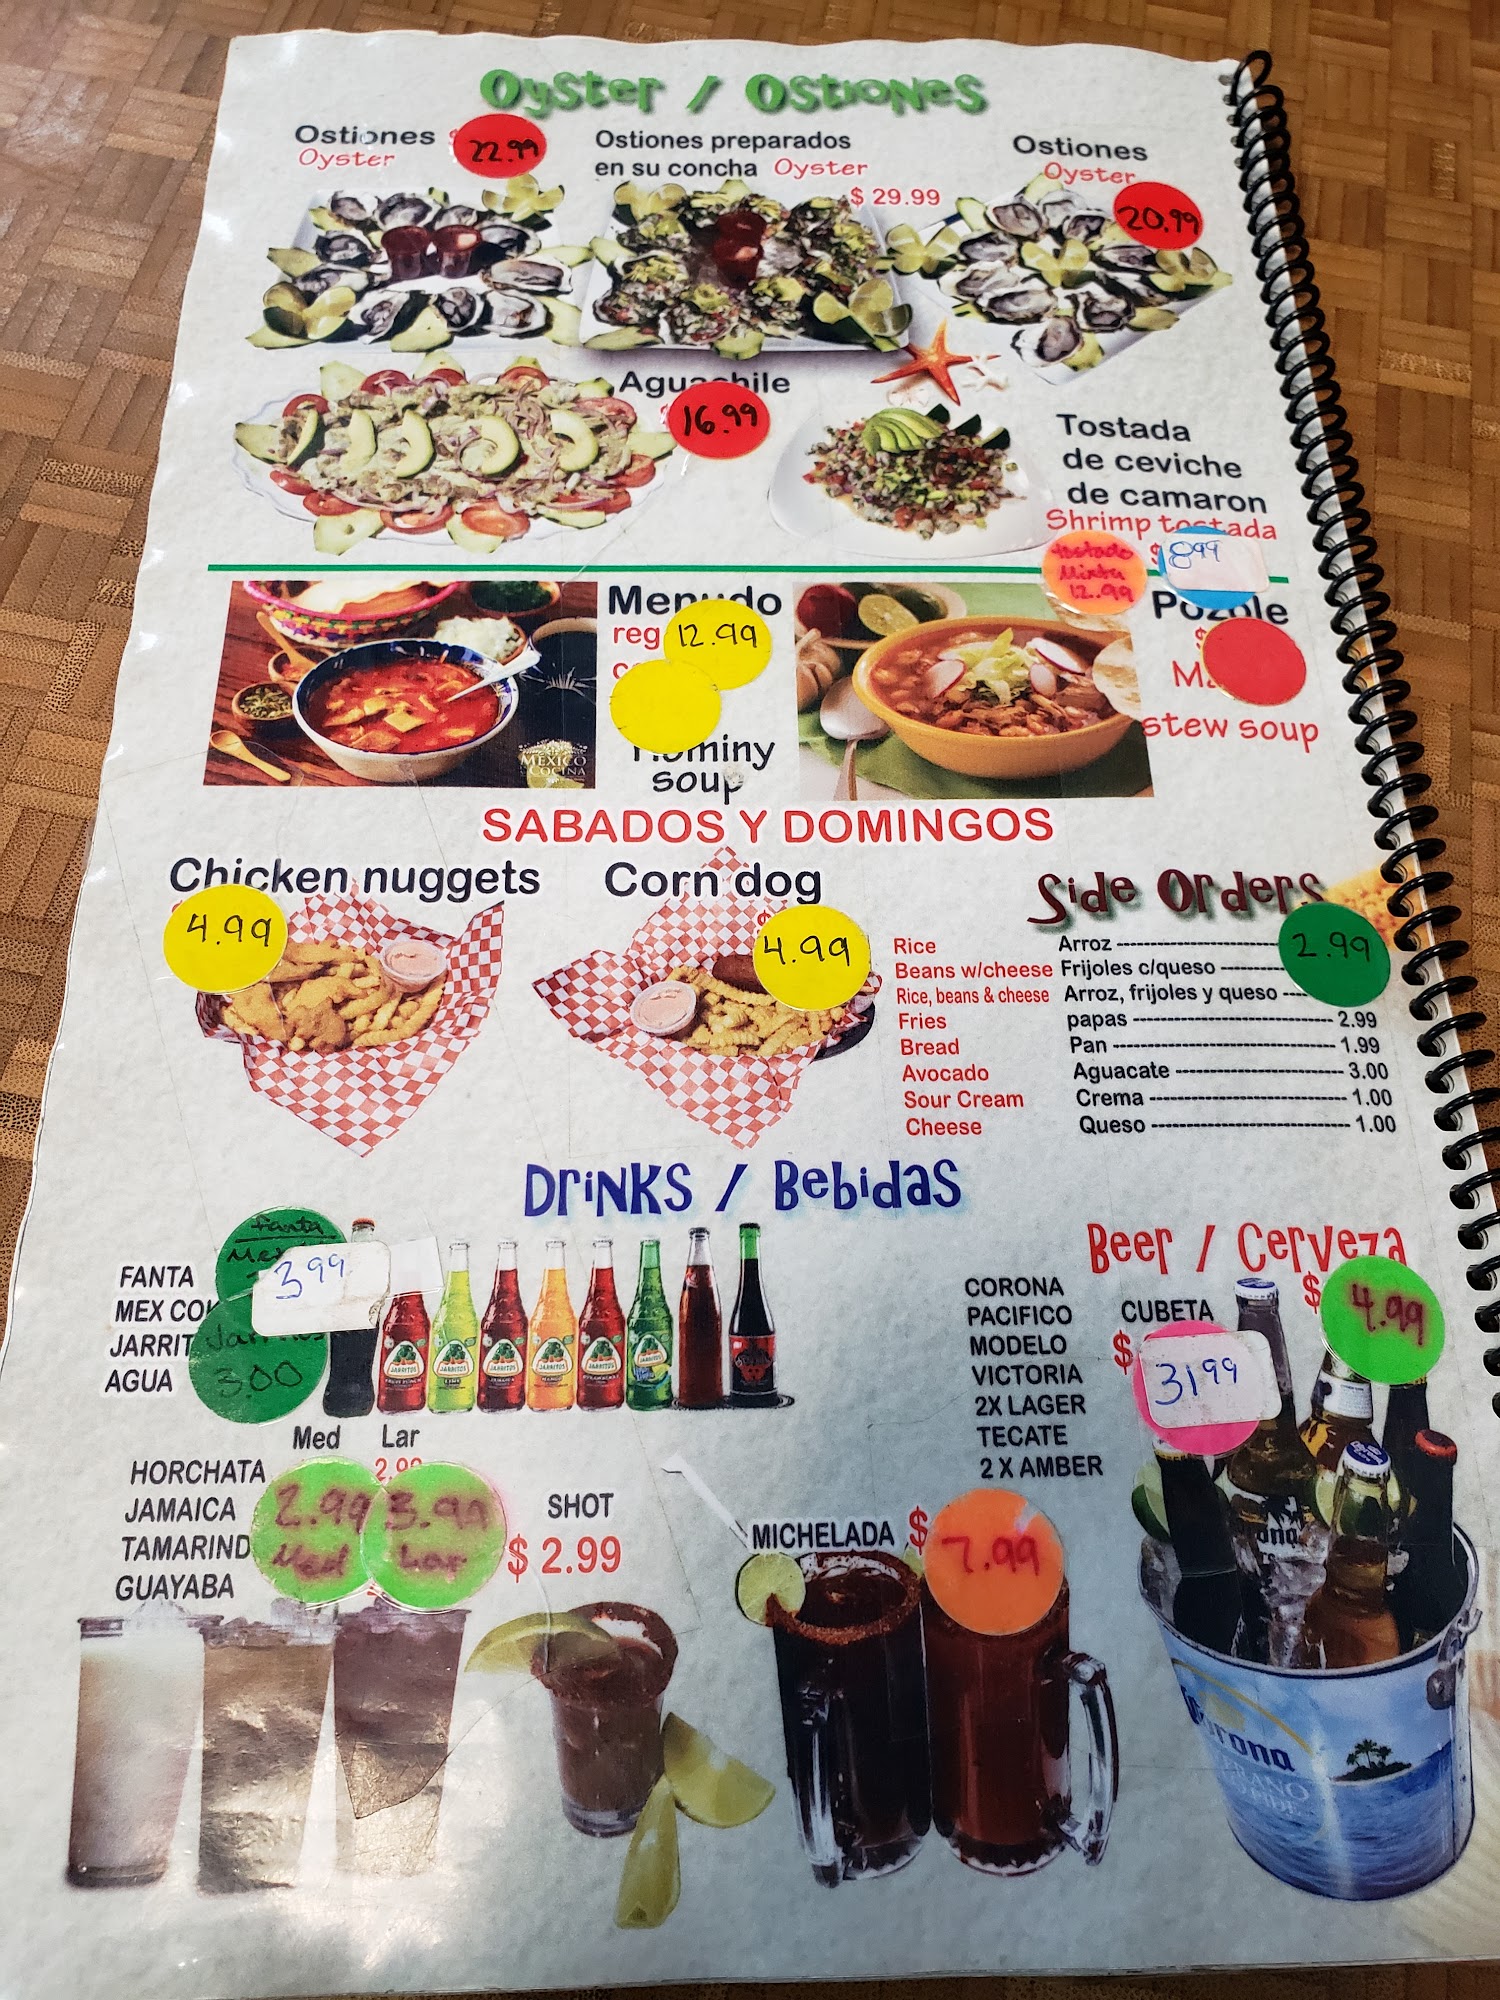 Oyster / Ostiones
Ostiones
Oyster
22.99
Ostiones preparados
en su concha Oyster
$ 29.99
Ostiones
Oyster
20.99
Aguachile
16.99
Tostada
de ceviche
de camaron
Shrimp tostada
$ 8.99
tostada
Mixta
12.99
Menudo
reg 12.99
Hominy
soup
MEXICO
COCINA
Pozole
$
stew soup
SABADOS Y DOMINGOS
Chicken nuggets
4.99
Corn dog
4.99
Side Orders
Rice Arroz 2.99
Beans w/cheese Frijoles c/queso
Rice, beans & cheese Arroz, frijoles y queso
Fries papas 2.99
Bread Pan 1.99
Avocado Aguacate 3.00
Sour Cream Crema 1.00
Cheese Queso 1.00
Drinks / Bebidas
Fanta
3.99
FANTA
MEX
JARRIT
AGUA
3.00
Med Lar
2.99
HORCHATA
JAMAICA
TAMARIND
GUAYABA
2.99
Med
3.99
Lar
SHOT
$ 2.99
Beer / Cerveza
$ 4.99
CORONA
PACIFICO
MODELO
VICTORIA
2X LAGER
TECATE
2 X AMBER
CUBETA
$ 31.99
MICHELADA $ 7.99
Corona